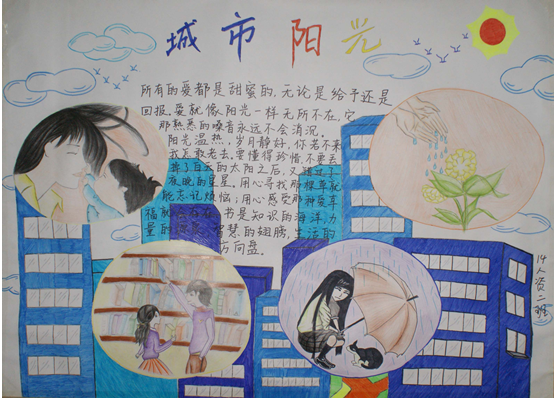 城市阳光
所有的爱都是甜蜜的,无论是给予还是
回报。爱就像阳光一样无所不在,它
那熟悉的嗓音永远不会消沉。
阳光温热,岁月静好,你若不来
我怎敢老去。要懂得珍惜,不要丢
弃了白天的太阳之后,又错过了
夜晚的星星。用心寻找那
能忘记烦恼;用心感受那种
福就会存在。书是知识的海洋,力
量的 智慧的翅膀,生活的
方向盘。
14人资二班